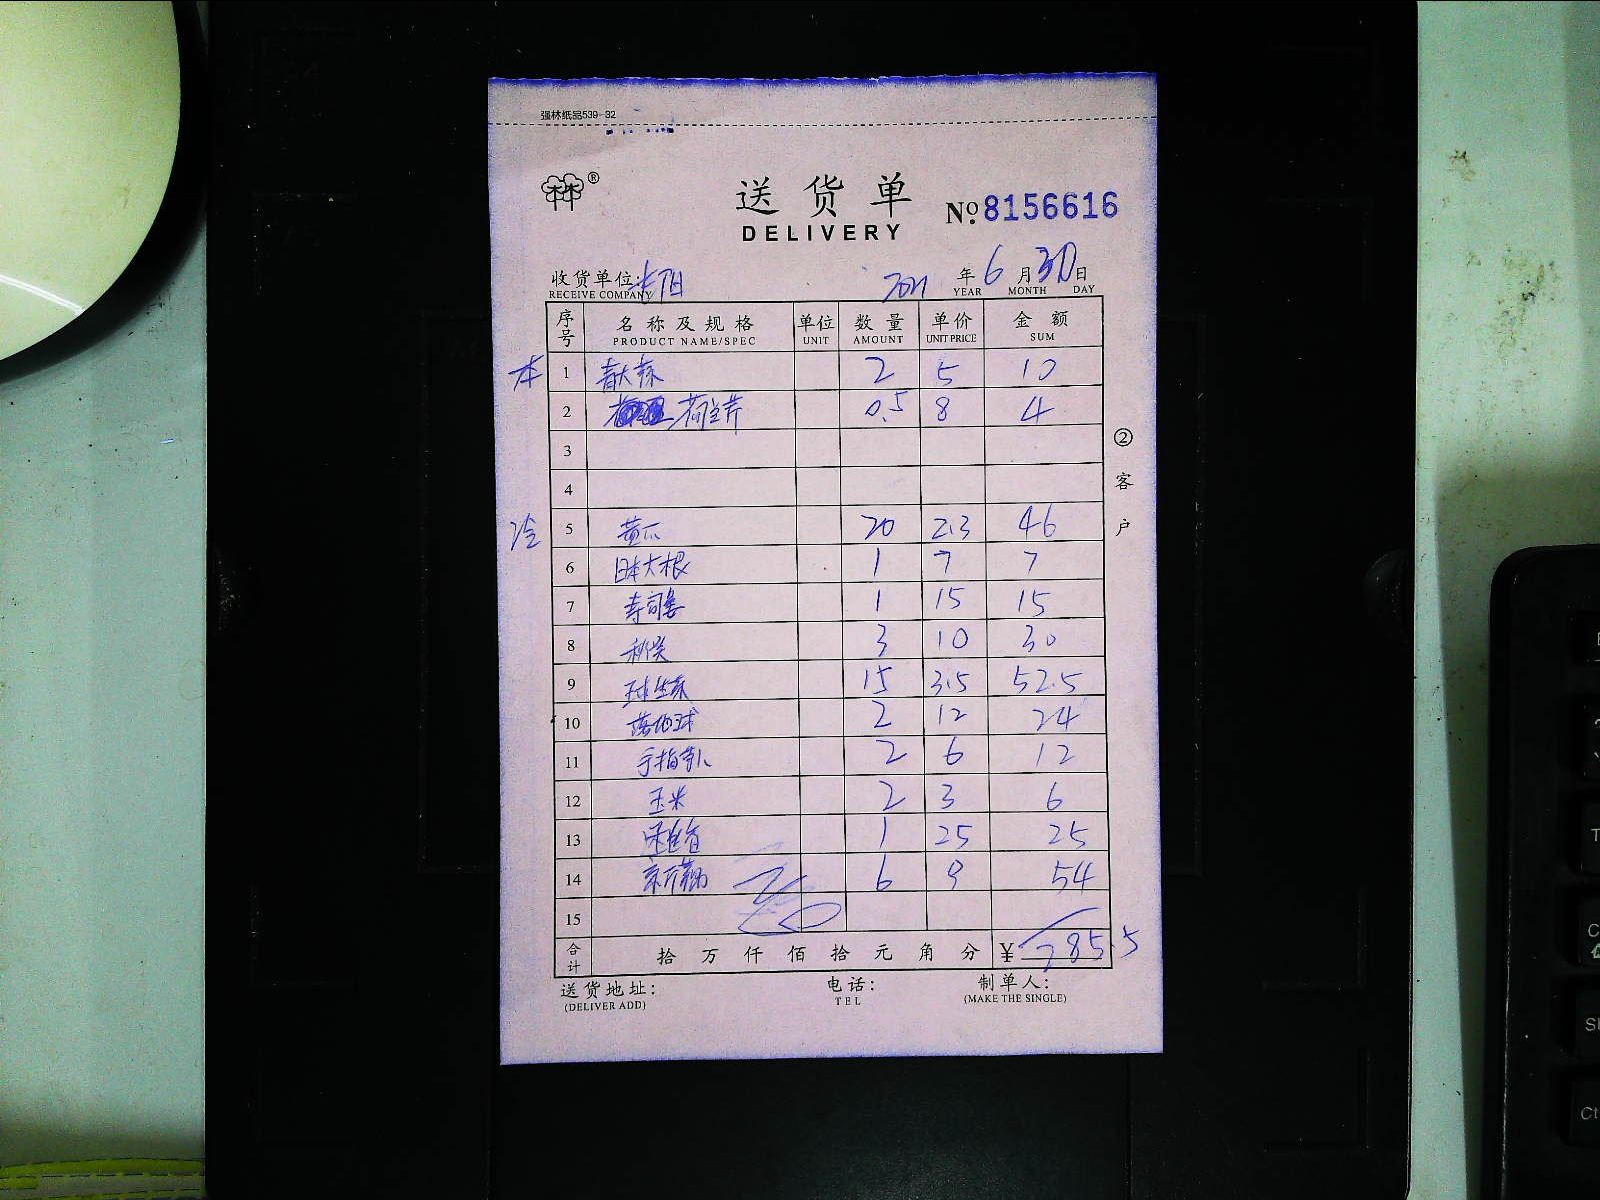 强林纸品539-32
®
送货单 No.8156616
DELIVERY
收货单位: 2021 年 6 月 30 日
RECEIVE COMPANY YEAR MONTH DAY
序号 名称及规格 单位 数量 单价 金额
PRODUCT NAME/SPEC UNIT AMOUNT UNIT PRICE SUM
本 1 青大蒜 2 5 10
2 荷兰芹 0.5 8 4
3
4
冷 5 黄瓜 20 2.3 46
6 日本大根 1 7 7
7 寿司姜 1 15 15
8 秋葵 3 10 30
9 球生菜 15 3.5 52.5
10 2 12 24
11 2 6 12
12 玉米 2 3 6
13 1 25 25
14 6 9 54
15
合计 拾 万 仟 佰 拾 元 角 分 ¥ 285.5
送货地址: 电话: 制单人:
(DELIVER ADD) TEL (MAKE THE SINGLE)
② 客户